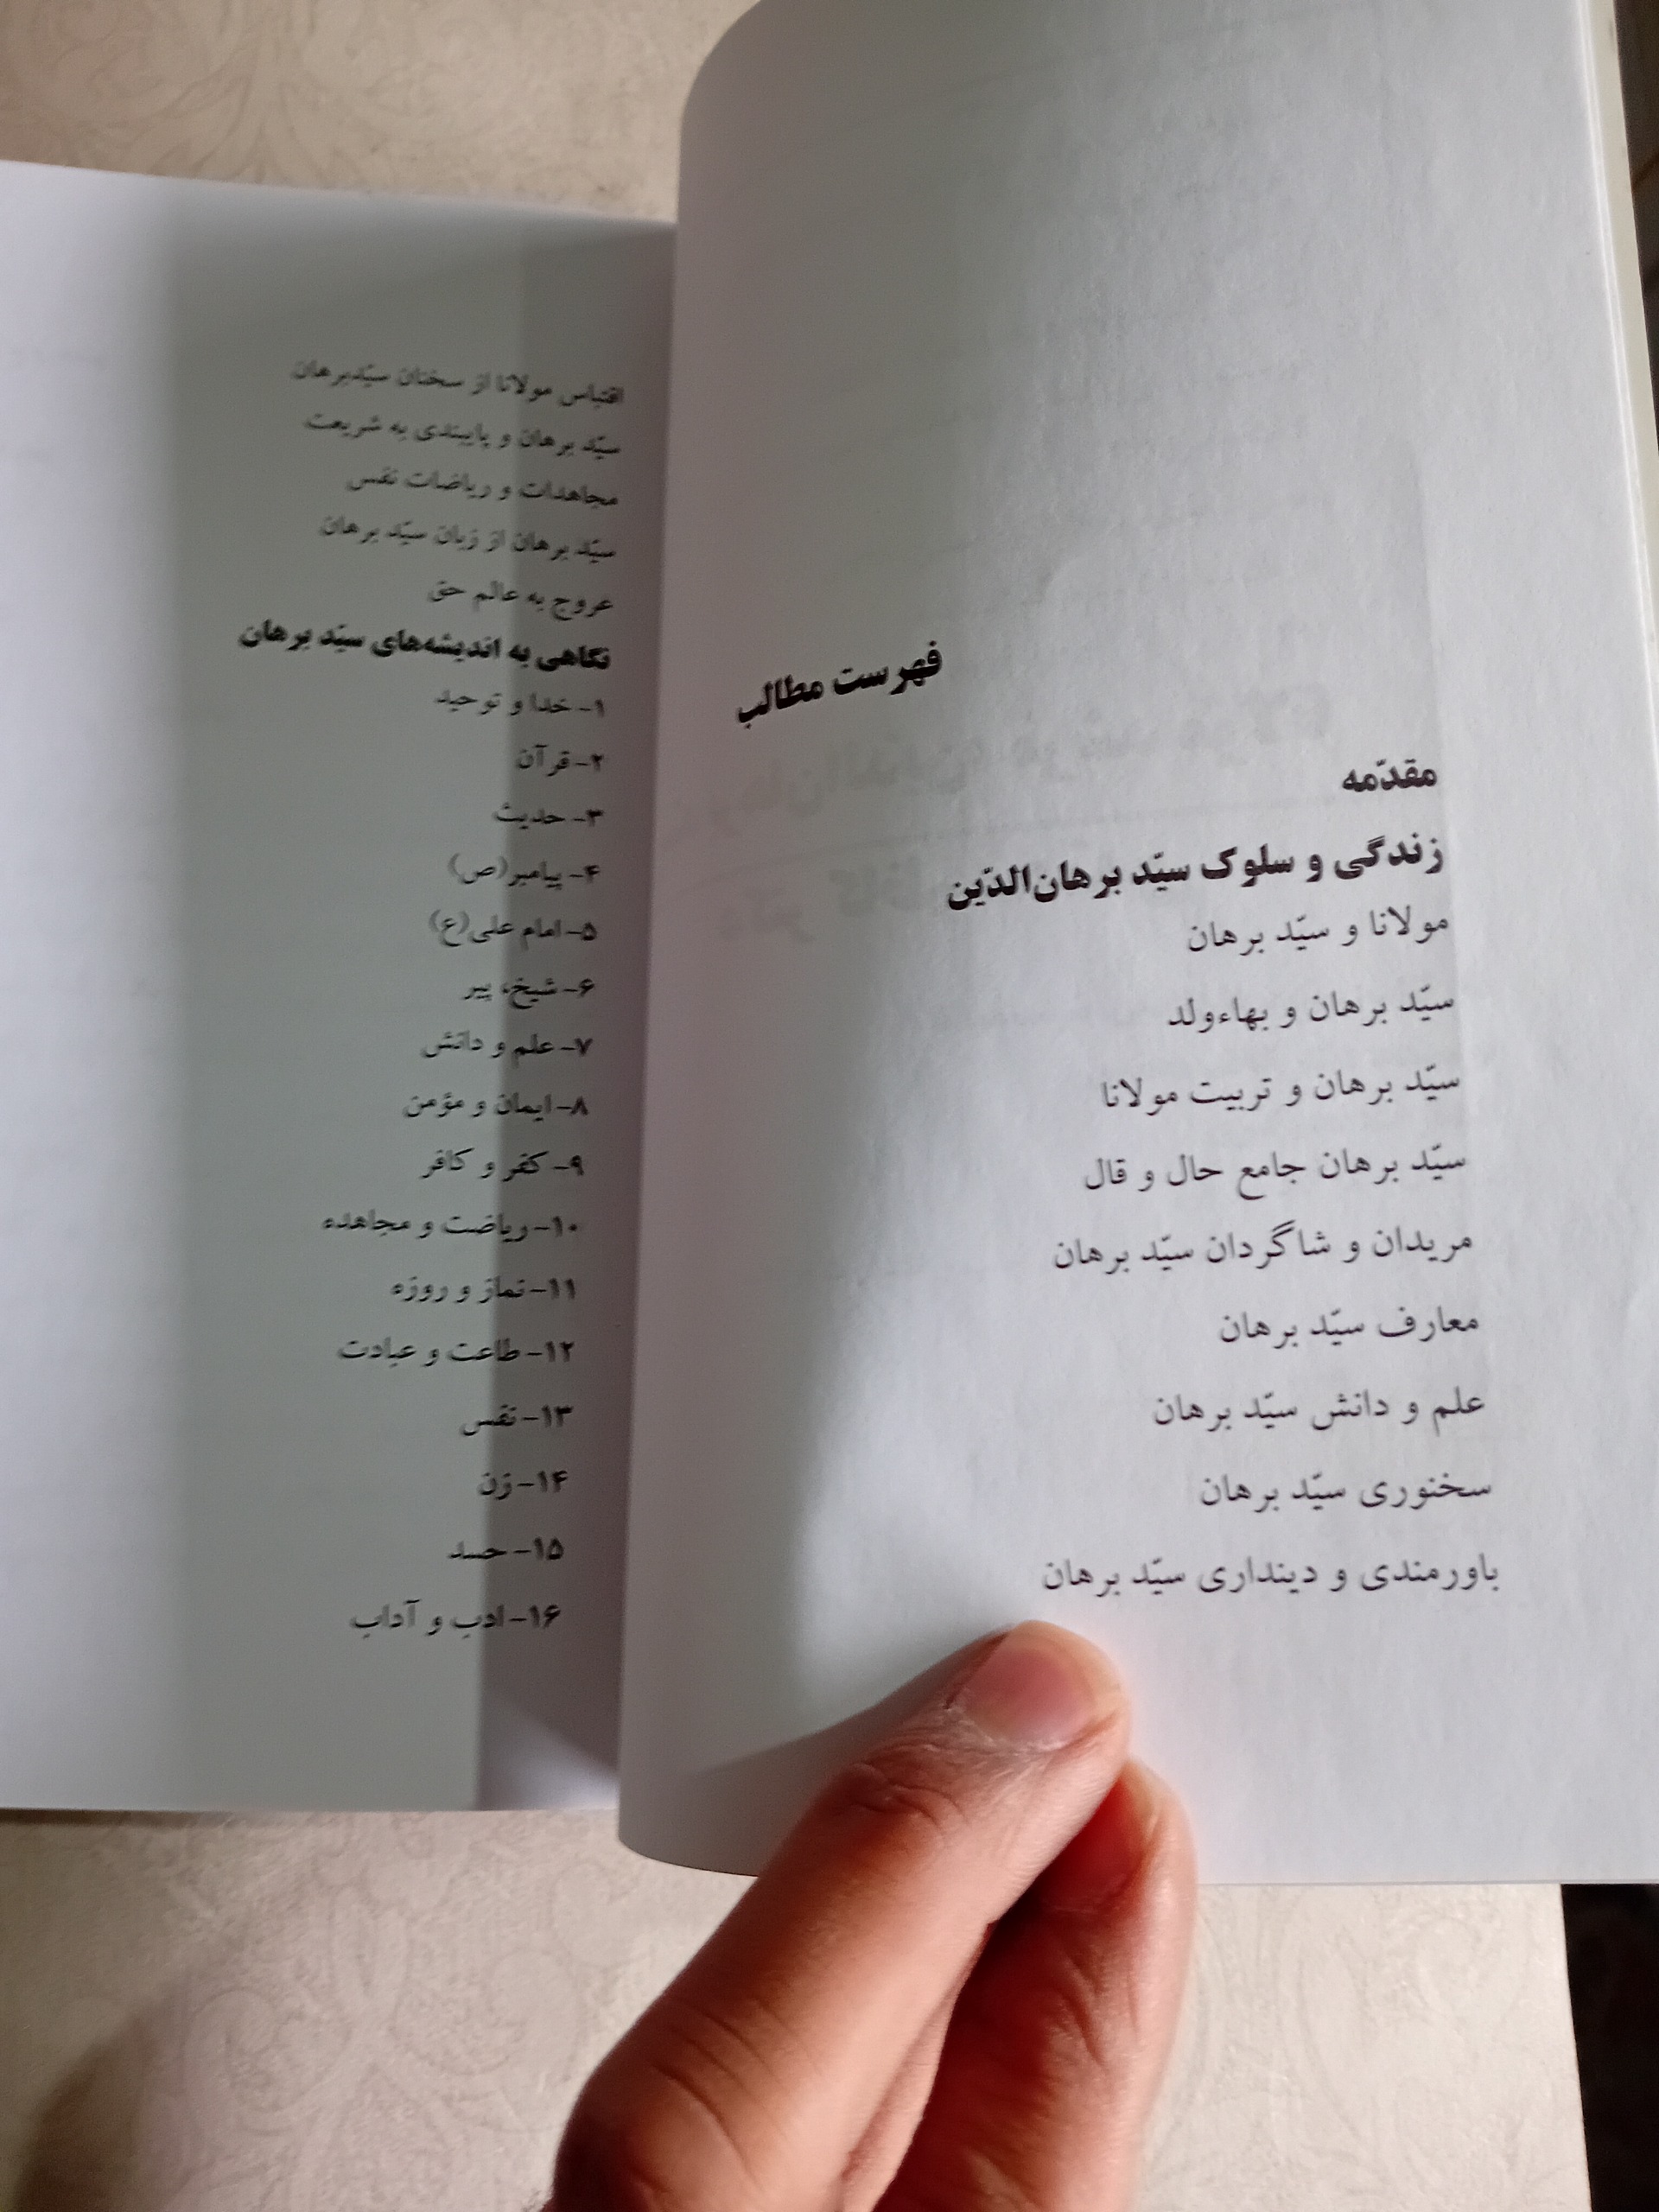 فهرست مطالب
مقدّمه
زندگی و سلوک سیّد برهان‌الدّین
مولانا و سیّد برهان
سیّد برهان و بهاءولد
سیّد برهان و تربیت مولانا
سیّد برهان جامع حال و قال
مریدان و شاگردان سیّد برهان
معارف سیّد برهان
علم و دانش سیّد برهان
سخنوری سیّد برهان
باورمندی و دینداری سیّد برهان
اقتباس مولانا از سخنان سیّدبرهان
سیّد برهان و پایبندی به شریعت
مجاهدات و ریاضات نفس
سیّد برهان از زبان سیّد برهان
عروج به عالم حق
نگاهی به اندیشه‌های سیّد برهان
۱- خدا و توحید
۲- قرآن
۳- حدیث
۴- پیامبر(ص)
۵- امام علی(ع)
۶- شیخ، پیر
۷- علم و دانش
۸- ایمان و مؤمن
۹- کفر و کافر
۱۰- ریاضت و مجاهده
۱۱- نماز و روزه
۱۲- طاعت و عبادت
۱۳- نفس
۱۴- زن
۱۵- حسد
۱۶- ادب و آداب